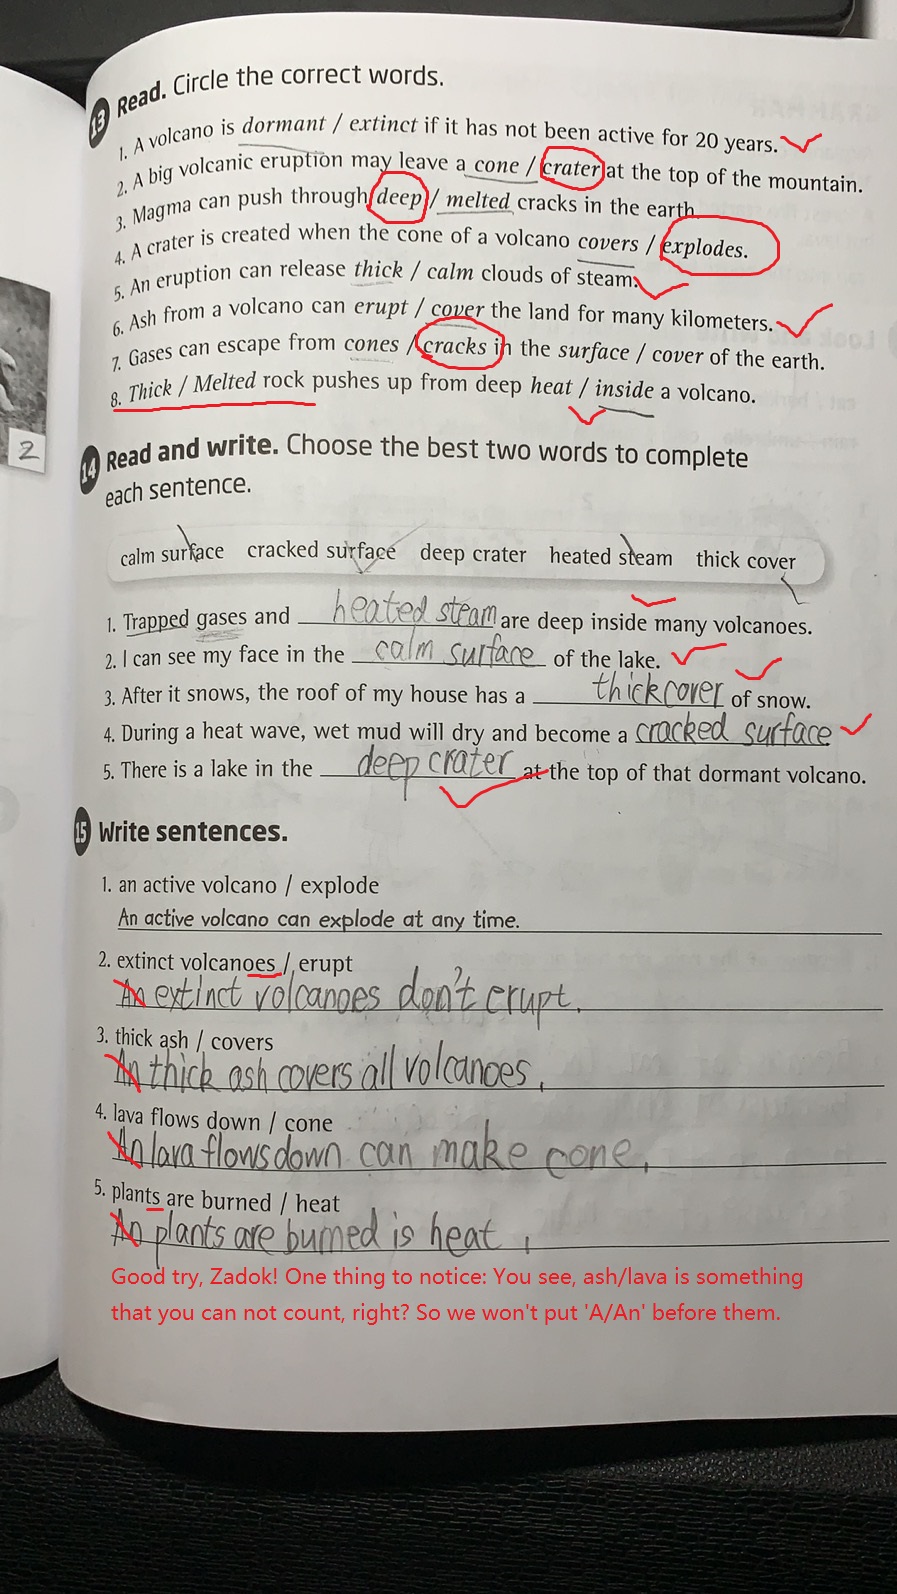 13 Read. Circle the correct words.
1. A volcano is dormant / extinct if it has not been active for 20 years.
2. A big volcanic eruption may leave a cone / crater at the top of the mountain.
3. Magma can push through deep / melted cracks in the earth.
4. A crater is created when the cone of a volcano covers / explodes.
5. An eruption can release thick / calm clouds of steam.
6. Ash from a volcano can erupt / cover the land for many kilometers.
7. Gases can escape from cones / cracks in the surface / cover of the earth.
8. Thick / Melted rock pushes up from deep heat / inside a volcano.
2
14 Read and write. Choose the best two words to complete
each sentence.
calm surface cracked surface deep crater heated steam thick cover
1. Trapped gases and heated steam are deep inside many volcanoes.
2. I can see my face in the calm surface of the lake.
3. After it snows, the roof of my house has a thick cover of snow.
4. During a heat wave, wet mud will dry and become a cracked surface
5. There is a lake in the deep crater at the top of that dormant volcano.
15 Write sentences.
1. an active volcano / explode
An active volcano can explode at any time.
2. extinct volcanoes / erupt
An extinct volcanoes don't erupt.
3. thick ash / covers
An thick ash covers all volcanoes.
4. lava flows down / cone
An lava flows down can make cone.
5. plants are burned / heat
An plants are burned is heat.
Good try, Zadok! One thing to notice: You see, ash/lava is something
that you can not count, right? So we won't put 'A/An' before them.